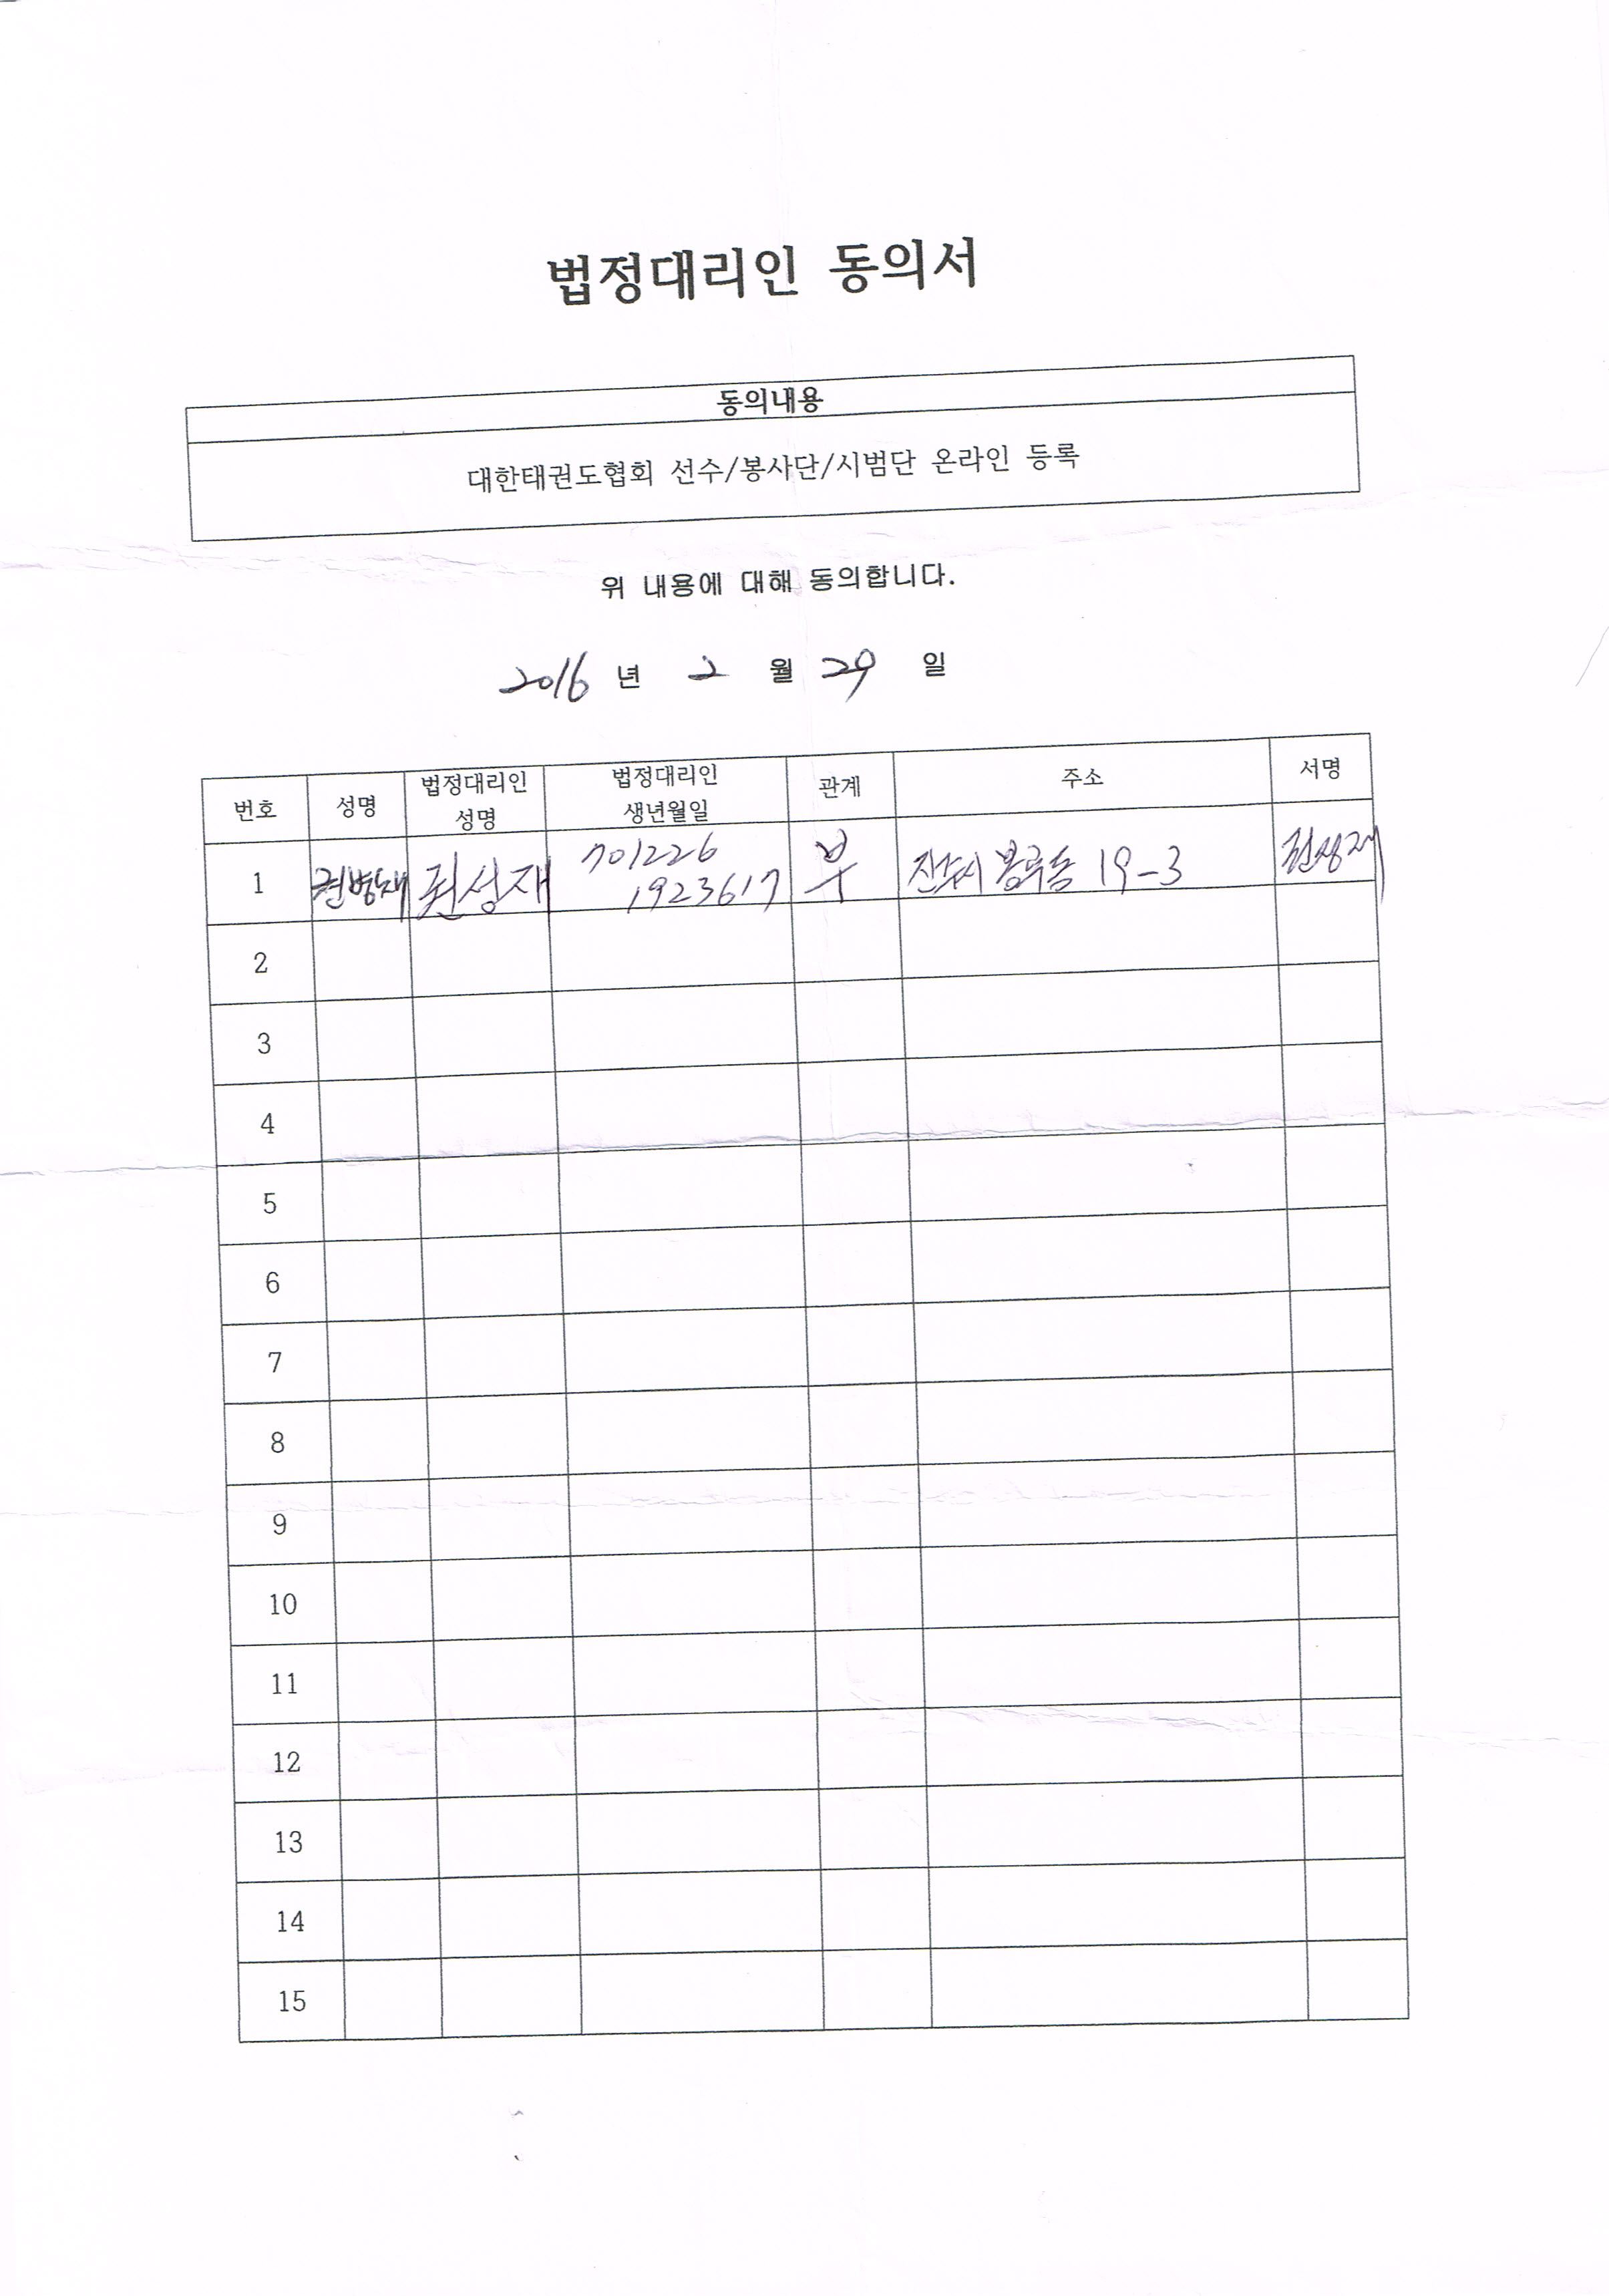 법정대리인 동의서
동의내용
대한태권도협회 선수/봉사단/시범단 온라인 등록
위 내용에 대해 동의합니다.
2016 년 2 월 29 일
번호 성명 법정대리인 성명 법정대리인 생년월일 관계 주소 서명
1 권병재 권성재 701226 부 진주시 19-3 권성재
1923617
2
3
4
5
6
7
8
9
10
11
12
13
14
15